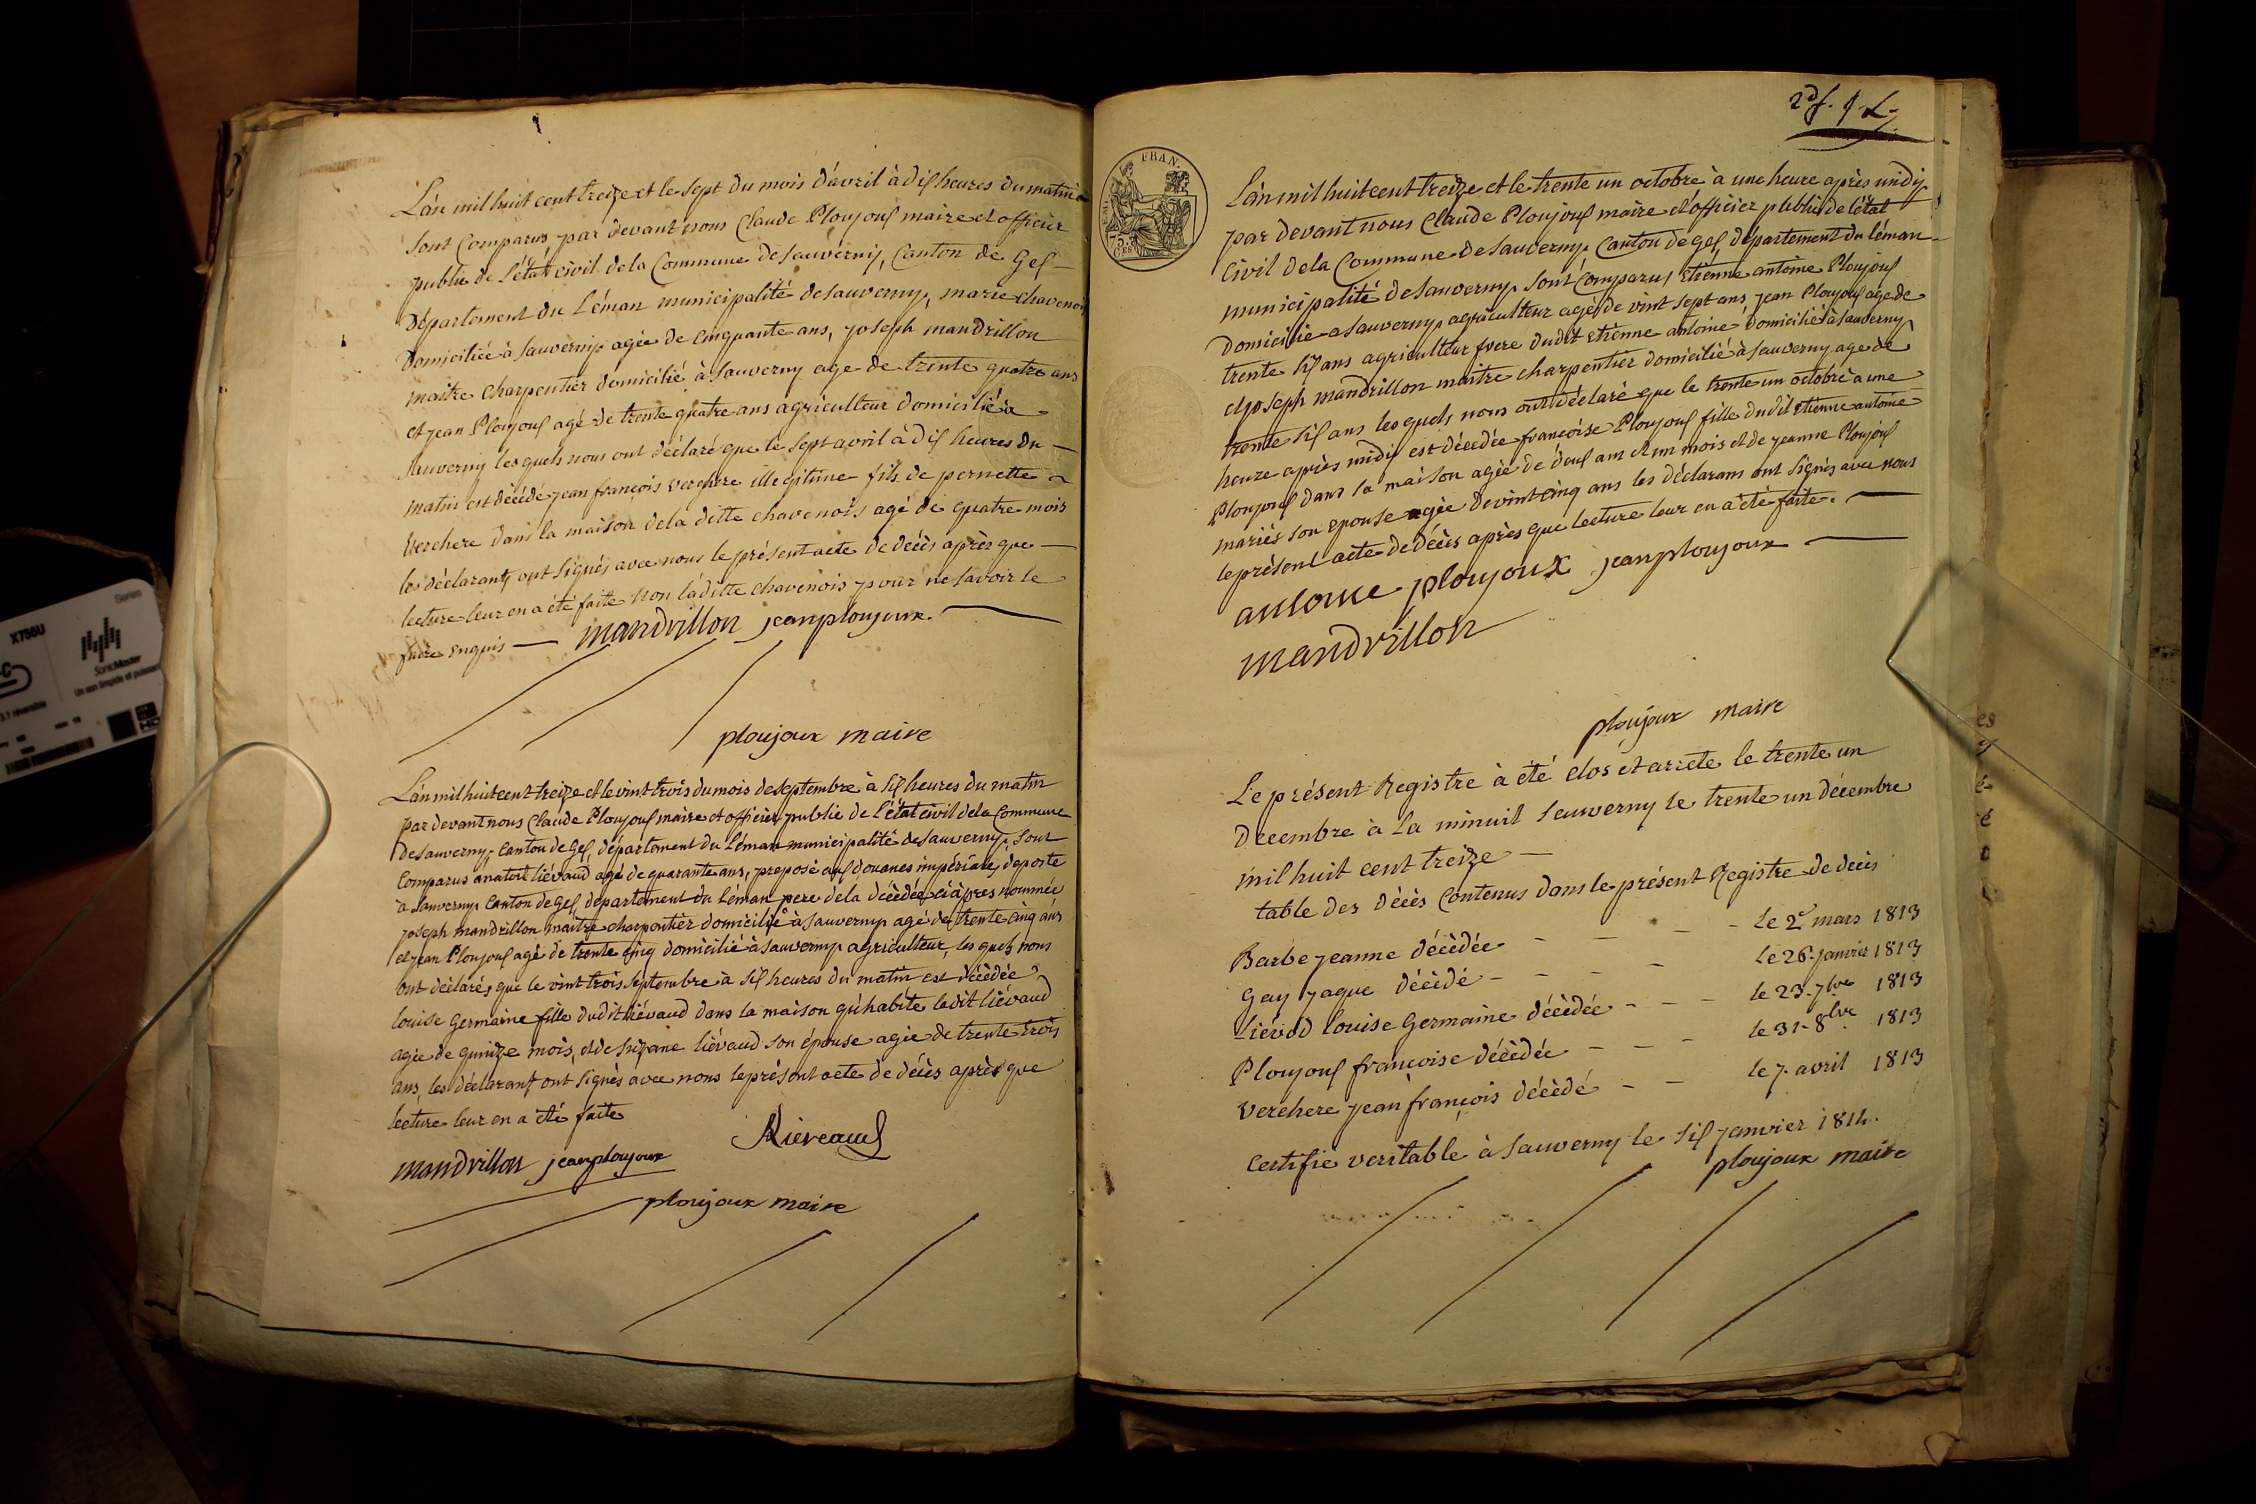 L'an mil huit cent treize et le sept du mois d'avril à dix heures du matin
sont Comparus par devant nous Claude Ploujoux maire et officier
public de l'état civil de la Commune de sauverny, Canton de Gex
département du Léman municipalité de sauverny, marie chavenois
domiciliée à sauverny agée de Cinquante ans, joseph mandrillon
maitre charpentier domicilié à sauverny age de trente quatre ans
et jean Ploujoux agé de trente quatre ans agriculteur domicilié à
sauverny lesquels nous ont déclaré que le sept avril à dix heures du
matin est décédé jean françois verchere illegitime fils de pernette
verchere dans la maison de la ditte chavenois agé de quatre mois
les déclarants ont signés avec nous le présent acte de décès après que
lecture leur en a été faite non la ditte chavenois pour ne savoir le
faire enquis mandrillon jean ploujoux
ploujoux maire
L'an mil huit cent treize et le vint trois du mois de septembre à six heures du matin
par devant nous Claude Ploujoux maire et officier public de l'état civil de la Commune
de sauverny, Canton de Gex, département du Léman municipalité de sauverny, sont
Comparus anatoil liévaud agé de quarante ans, preposé aux douanes impériale, de poste
à sauverny Canton de Gex, département du Léman pere de la décédée ci après nommée
joseph mandrillon maitre charpentier domicilié à sauverny agé de trente cinq ans
et jean Ploujoux agé de trente cinq domicilié à sauverny agriculteur, les quels nous
ont déclarés que le vint trois septembre à six heures du matin est décédée
louise Germaine fille dudit liévaud dans la maison qu'habite ledit liévaud
agée de quinze mois, et de suzane liévaud son épouse agée de trente trois
ans, les déclarants ont signés avec nous le présent acte de décès après que
lecture leur en a été faite
mandrillon jean ploujoux
ploujoux maire
FRAN.
L'an mil huit cent treize et le trente un octobre à une heure après midy
par devant nous Claude Ploujoux maire et officier public de l'état
Civil de la Commune de sauverny, Canton de Gex, département du léman
municipalité de sauverny sont Comparus, Etienne antoine Ploujoux
domicilié a sauverny agriculteur agé de vint sept ans, jean Ploujoux age de
trente six ans agriculteur frere dudit etienne antoine domicilié à sauverny
et joseph mandrillon maitre charpentier domicilié à sauverny age de
trente six ans lesquels nous ont déclaré que le trente un octobre à une
heure après midy est décédée francoise Ploujoux fille dudit Etienne antoine
Ploujoux dans sa maison agée de deux ans et un mois et de jeanne Ploujoux
mariés son epouse agée de vint cinq ans les déclarans ont signés avec nous
le présent acte de décès après que lecture leur en a été faite.
antoine ploujoux jean ploujoux
mandrillon
ploujoux maire
Le présent Registre à été clos et arrete le trente un
Decembre à la minuit sauverny le trente un décembre
mil huit cent treize
table des décès Contenus dans le présent Registre de décès
Barbe jeanne décédée - - - - le 2e mars 1813
Gay jaque décédé - - - - le 26 janvier 1813
Liévod louise Germaine décédée - - - le 23 7bre 1813
Ploujoux françoise décédée - - - le 31 8bre 1813
verchere jean françois décédé - - le 7 avril 1813
Certifie veritable à sauverny le six janvier 1814.
ploujoux maire
X756U
Series
SonicMaster
Un son limpide et puissant